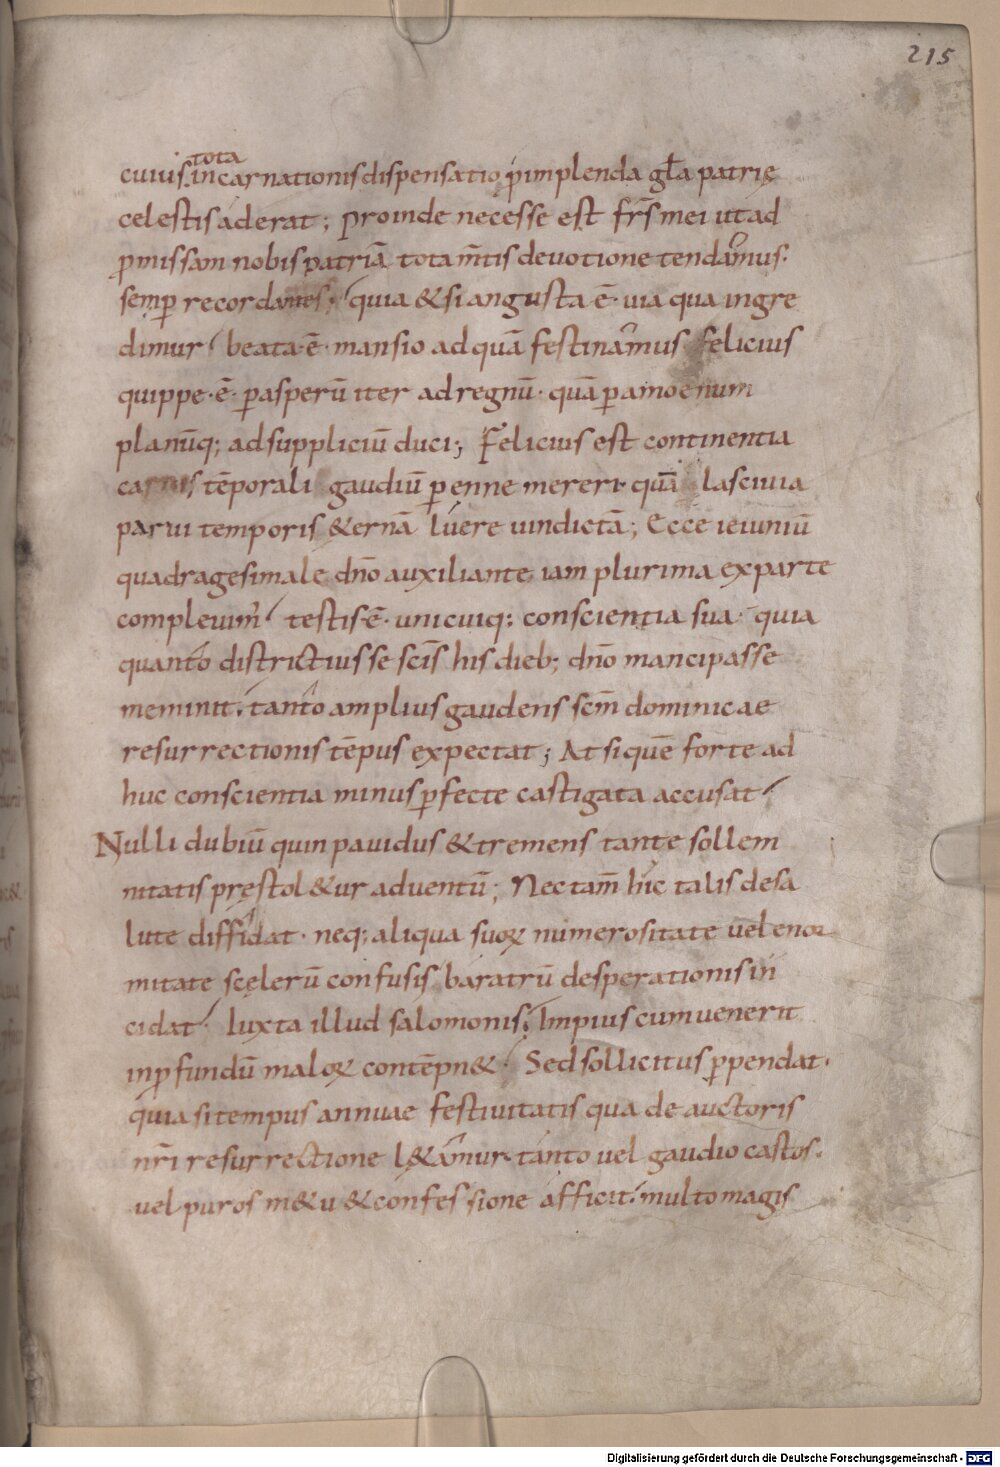 215
tota
cuius incarnationis dispensatio ṕimplenda gła patrię
celestis aderat; proinde necesse est fr̄s mei ut ad
ꝓmissam nobis patriā tota m̄tis deuotione tendam᷒us.
semꝑ recordantes; quia &si angusta ē· uia qua ingre
dimur· beata·ē· mansio ad quā festinam᷒us felicius
quippe·ē· ꝑasperū iter ad regnū· quā ꝑamoenum
planūq; ad suppliciū duci; Felicius est continentia
carnis tēporali gaudiū ꝑenne mereri· quā lasciuia
parui temporis &ernā luere uindictā; Ecce ieiuniū
quadragesimale dn̄o auxiliante iam plurima ex parte
compleuim᷒ testis·ē· unicuiq; conscientia sua· quia
quanto districtius se scīs his dieb; dn̄o mancipasse
meminit. tanto amplius gaudens scm̄ dominicae
resurrectionis tēpus expectat; At si quē forte ad
huc conscientia minus ꝑfecte castigata accusat
Nulli dubiū quin pauidus &tremens tante sollem
nitatis pręstol&ur aduentū; Nec tam̄ hic talis desa
lute diffidat· neq; aliqua suoꝝ numerositate uel enor
mitate scelerū confusus baratrū desperationis in
cidat· Iuxta illud salomonis; Impius cum uenerit
inꝓfundū maloꝝ contēpn&· Sed sollicitus ꝑpendat·
quia si tempus annuae festiuitatis qua de auctoris
nr̄i resurrectione l&amur· tanto uel gaudio castos·
uel puros m&u &confessione afficit· multo magis
Digitalisierung gefördert durch die Deutsche Forschungsgemeinschaft - DFG